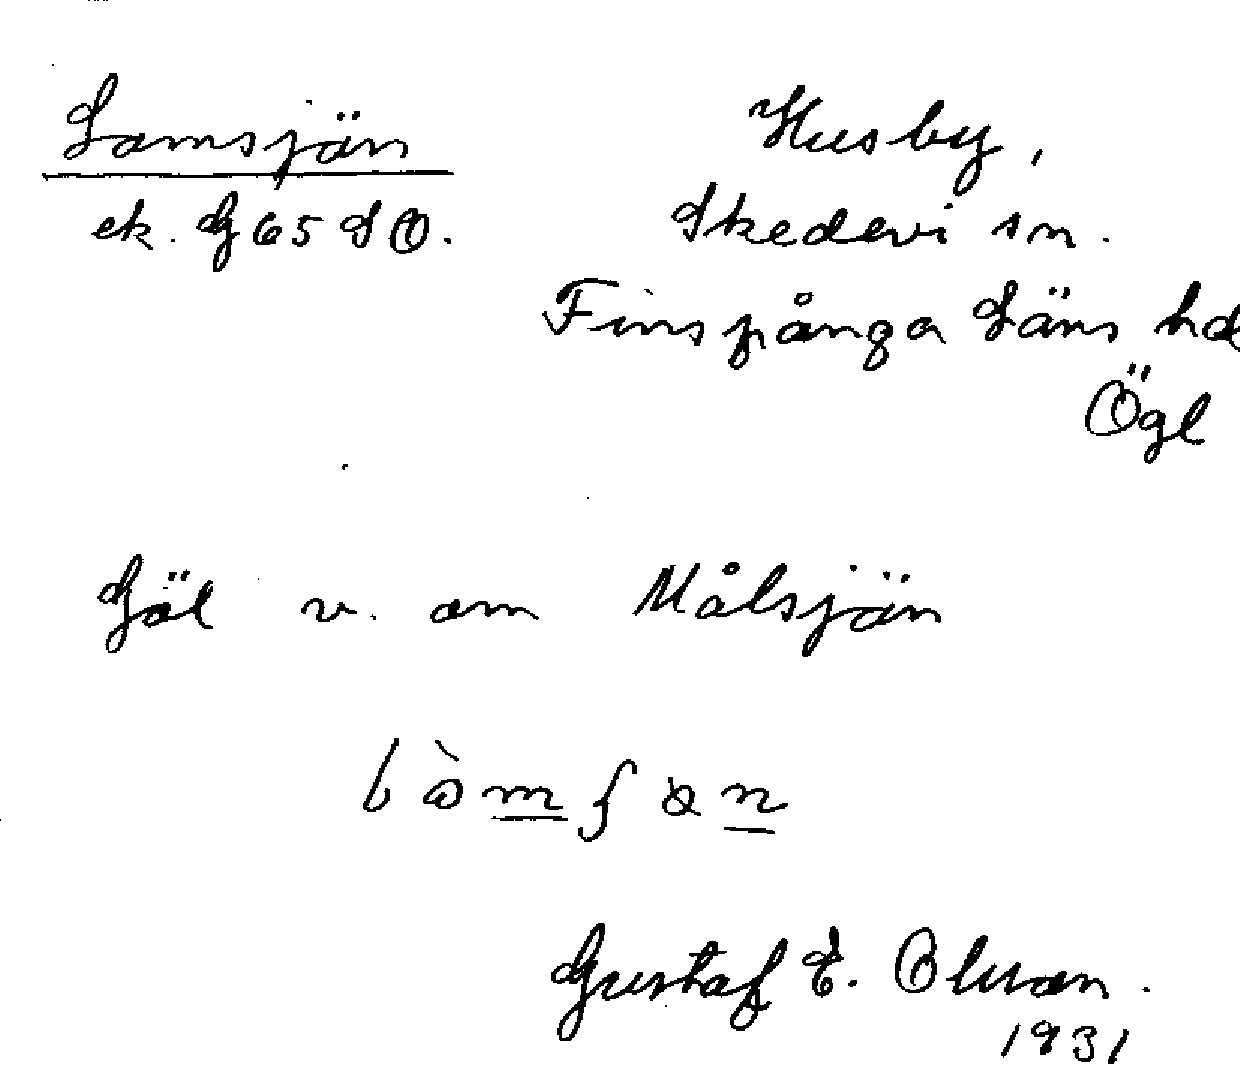 Lomsjön
ek. G 65 SO.
Husby,
Skedevi sn.
Finspånga Läns hd
Ögl
Göl v. om Målsjön
Gustaf E. Olsson.
1931